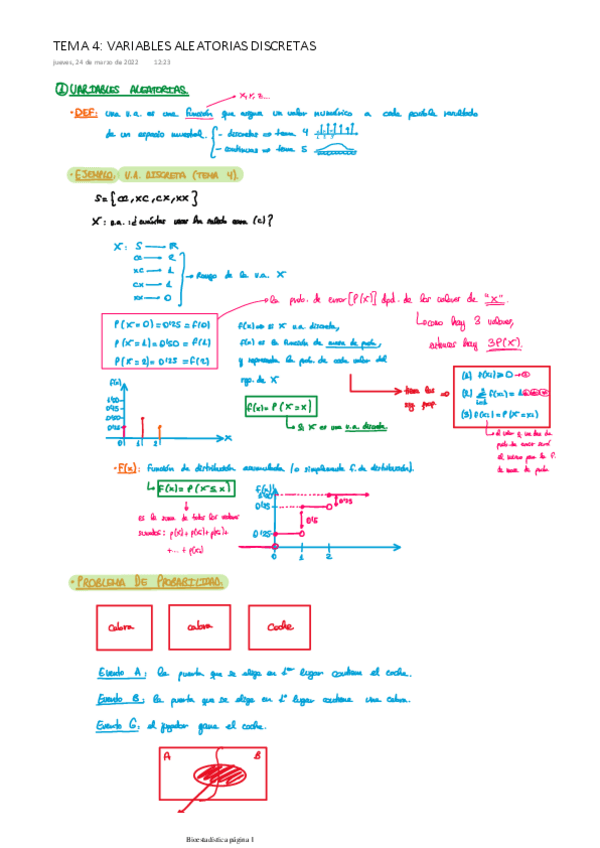 TEMA 4: VARIABLES ALEATORIAS DISCRETAS
jueves, 24 de marzo de 2022 12:23
① VARIABLES ALEATORIAS
x, y, z...
· DEF: una v.a. es una función que asigna un valor numérico a cada posible resultado
de un espacio muestral. - discretas => tema 4
- continuas => tema 5
· EJEMPLO: V.A. DISCRETA (TEMA 4).
S={cc, xc, cx, xx}
X: v.a.: ¿cuántas veces ha salido cara (c)?
X: S → R
cc → 2
xc → 1
cx → 1
xx → 0
→ Rango de la v.a. X
→ la prob. de error [P(X)] dpd. de los valores de "X".
como hay 3 valores,
entonces hay 3P(X).
P(X=0)=0'25=f(0)
P(X=1)=0'50=f(1)
P(X=2)=0'25=f(2)
f(x) => si X v.a discreta,
f(x) es la función de masa de prob.,
y representa la prob. de cada valor del
rgo. de X
f(x)=P(X=x)
si X es una v.a. discreta
tiene las
sig. prop.
(1) P(xi)≥0
(2) Σ f(xi)=1
(3) f(xi)=P(X=xi)
f(x)
1'00
0'75
0'50
0'25
0 1 2
X
· F(x): Función de distribución acumulada (o simplemente f. de distribución).
F(x)=P(X≤x)
es la suma de todos los valores
+... + p(xi)
F(x)
1'00
0'75
0'25
0'25
0'5
0 1 2
· PROBLEMA DE PROBABILIDAD:
cabra cabra coche
Evento A: la puerta que se elige en 1er lugar contiene el coche.
Evento B: la puerta que se elige en 1er lugar contiene una cabra.
Evento G: el jugador gana el coche.
A B
Bioestadística página 1